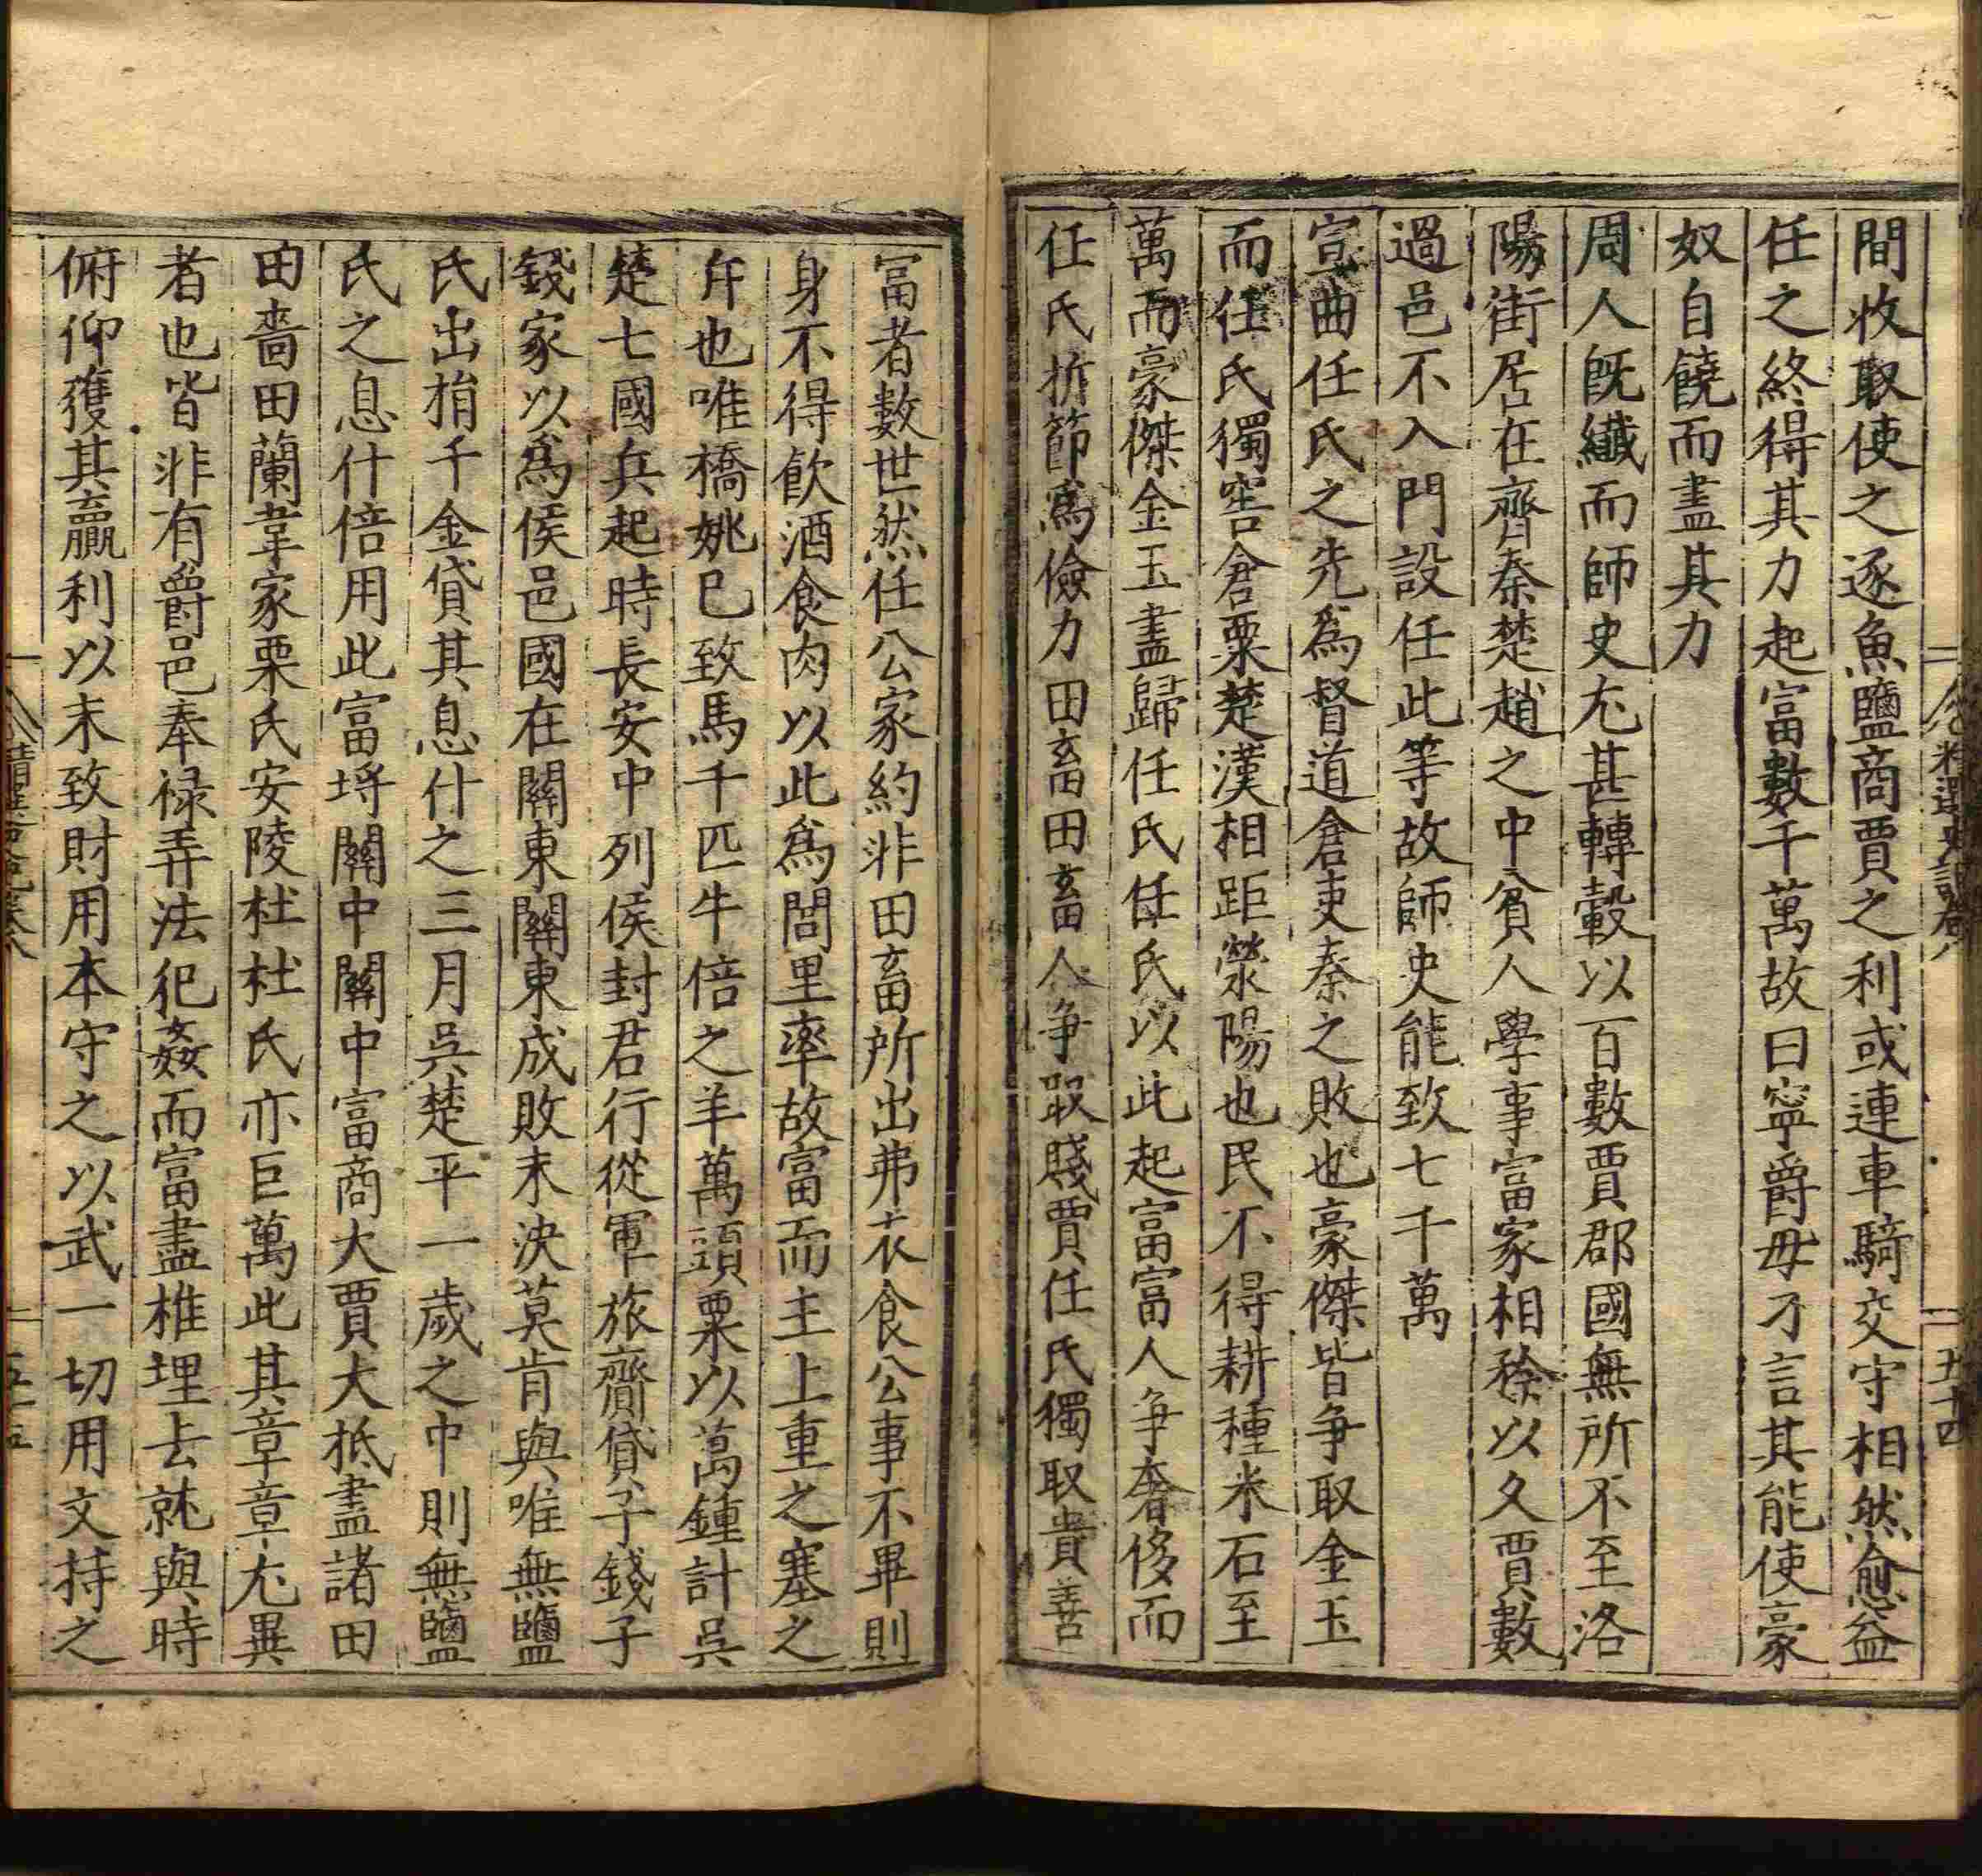 間收取使之逐魚鹽商賈之利或連車騎交守相然愈益
任之終得其力起富數千萬故曰寧爵毋刁言其能使豪
奴自饒而盡其力
周人旣纖而師史尤甚轉轂以百數賈郡國無所不至洛
陽街居在齊秦楚趙之中貧人學事富家相稌以久賈數
過邑不入門設任此等故師史能致七千萬
宣曲任氏之先爲督道倉吏秦之敗也豪傑皆争取金玉
而任氏獨窖倉粟楚漢相距滎陽也民不得耕種米石至
萬而豪傑金玉盡歸任氏任氏以此起富富人争奢侈而
任氏折節爲儉力田畜田畜人争取賤賈任氏獨取貴善
富者數世然任公家約非田畜所出弗衣食公事不畢則
身不得飲酒食肉以此爲閭里率故富而主上重之塞之
斥也唯橋姚已致馬千匹牛倍之羊萬頭粟以萬鍾計吳
楚七國兵起時長安中列侯封君行從軍旅齎貸子錢子
錢家以爲侯邑國在關東關東成敗未決莫肯與唯無鹽
氏出捐千金貸其息什之三月吳楚平一歲之中則無鹽
氏之息什倍用此富埒關中關中富商大賈大抵盡諸田
田嗇田蘭韋家栗氏安陵杜杜氏亦巨萬此其章章尤異
者也皆非有爵邑奉禄弄法犯姦而富盡椎埋去就與時
俯仰獲其贏利以末致財用本守之以武一切用文持之
精選史記卷八
五十四
五十五